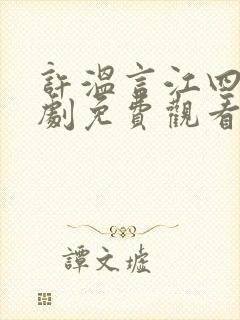 許溫言江四
劇免費觀看
譚文墟